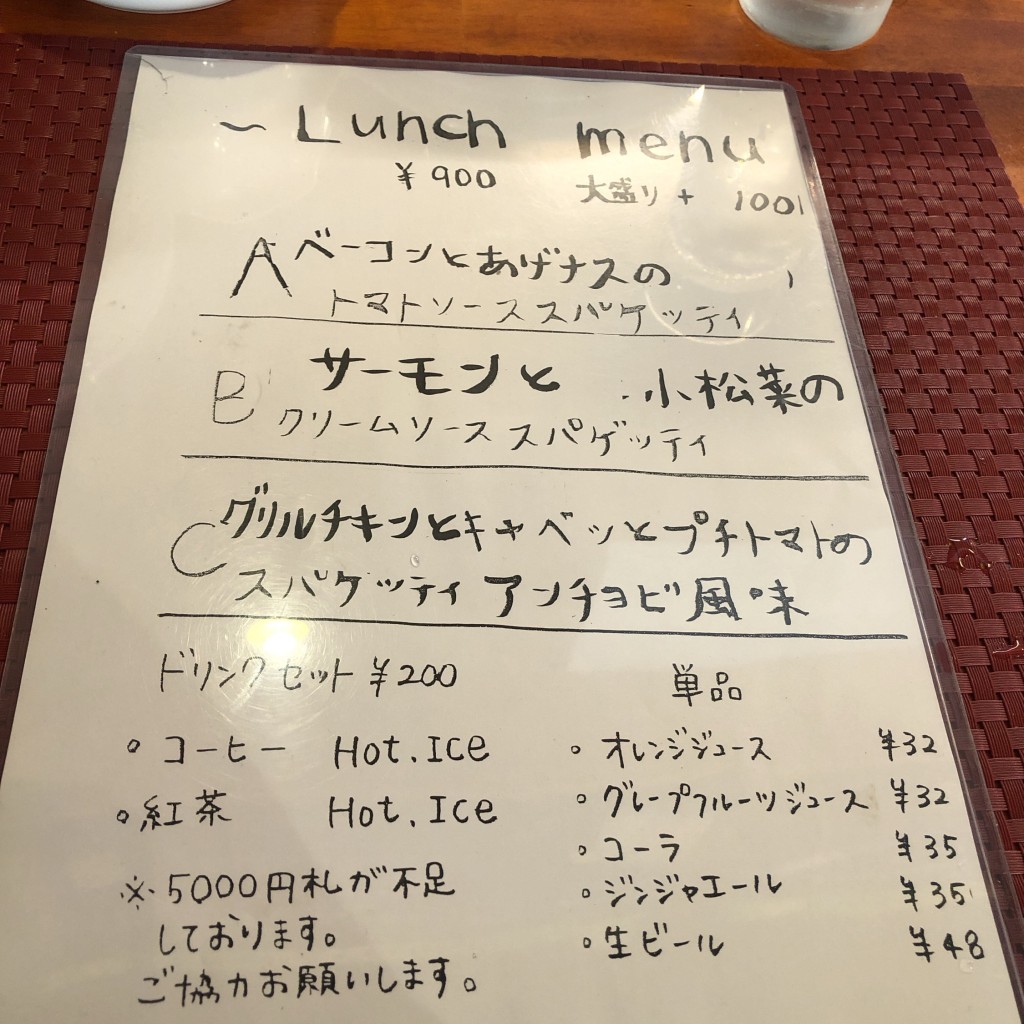 ~ Lunch menu
¥900 大盛り + 100
A ベーコンとあげナスの
トマトソーススパゲッティ
B サーモンと 小松菜の
クリームソース スパゲッティ
C グリルチキンとキャベツとプチトマトの
スパゲッティ アンチョビ風味
ドリンクセット ¥200
。コーヒー Hot. Ice
。紅茶 Hot. Ice
※ 5000円札が不足
しております。
ご協力お願いします。
単品
。オレンジジュース ¥32
。グレープフルーツジュース ¥32
。コーラ ¥35
。ジンジャエール ¥35
。生ビール ¥48